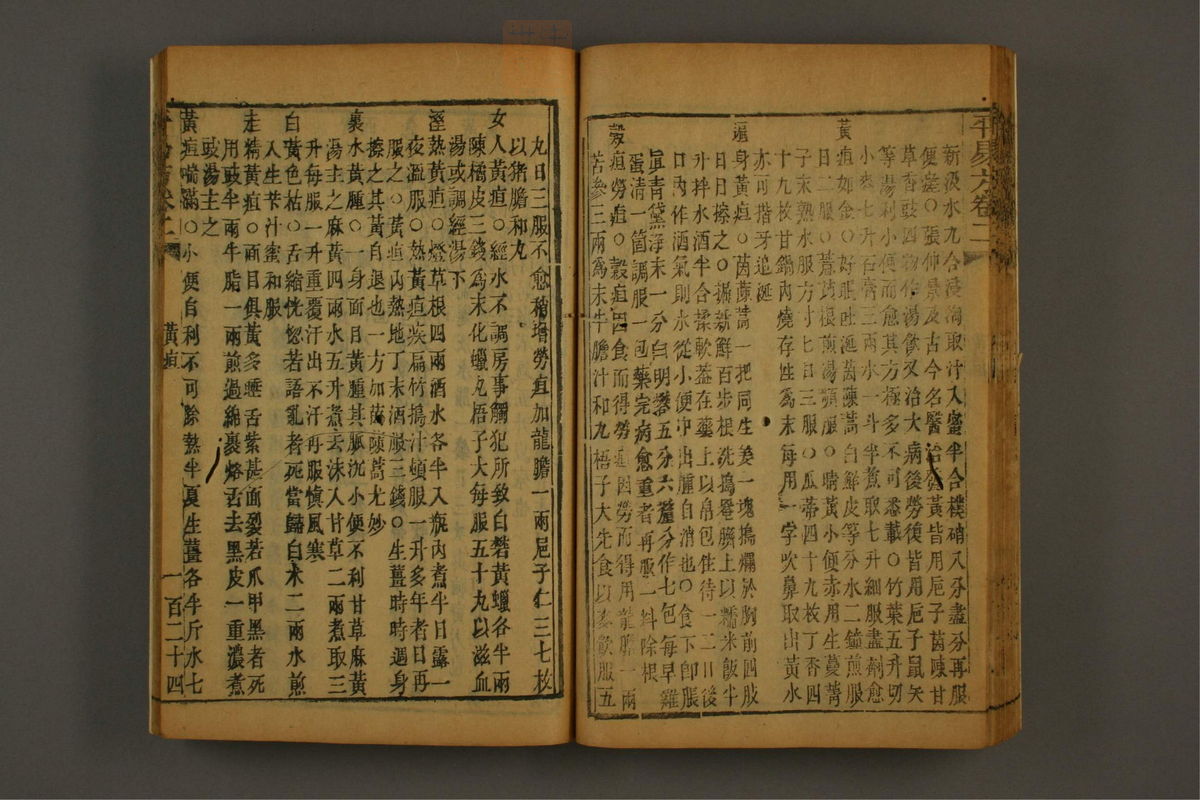 平易方卷二
新汲水九合浸淘取汁入蜜半合樸硝八分盡分再服
便差○張仲景及古今名醫治發黃皆用巵子茵陳甘
草香豉四物作湯飲又治大病後勞復皆用巵子鼠矢
等湯利小便而愈其方極多不可悉載○竹葉五升切
小麥七升石膏三兩水一斗半煮取七升細服盡劑愈
黃疸如金○好眠吐涎茵蔯蒿白鮮皮等分水二鍾煎服
日二服○薏苡根煎湯頻服○睛黃小便赤用生蔓菁
子末熟水服方寸匕日三服○瓜蒂四十九枚丁香四
十九枚甘鍋內燒存性為末每用一字吹鼻取出黃水
亦可揩牙追涎
遍身黃疸○茵蔯蒿一把同生姜一塊搗爛於胸前四肢
日日擦之○搗新鮮百步根洗搗罨臍上以糯米飯半
升拌水酒半合揉軟蓋在藥上以帛包住待一二日後
口內作酒氣則水從小便中出腫自消也○食下卽脹
眞青黛淨末一分白明礬五分六釐分作七包每早雞
蛋清一箇調服一包藥完病愈重者再服一料除根
穀疸勞疸○穀疸因食而得勞疸因勞而得用龍膽一兩
苦參三兩為末牛膽汁和丸梧子大先食以麥飲服五
丸日三服不愈稍增勞疸加龍膽一兩巵子仁三七枚
以猪膽和丸
女人黃疸○經水不調房事觸犯所致白礬黃蠟各半兩
陳橘皮三錢為末化蠟丸梧子大每服五十丸以滋血
湯或調經湯下
溼熱黃疸○燈草根四兩酒水各半入瓶內煮半日露一
夜溫服○熱黃疸疾扁竹搗汁頓服一升多年者日再
服之○黃疸內熱地丁末酒服三錢○生薑時時週身
擦之其黃自退也一方加茵蔯蒿尤妙
裏水黃腫○一身面目黃腫其脈沉小便不利甘草麻黃
湯主之麻黃四兩水五升煮去沫入甘草二兩煮取三
升每服一升重覆汗出不汗再服愼風寒
白黃色枯○舌縮恍惚若語亂者死當歸白朮二兩水煎
入生苄汁蜜和服
走精黃疸○面目俱黃多睡舌紫甚面裂若爪甲黑者死
用豉半兩牛脂一兩煎過綿裹烙舌去黑皮一重濃煮
豉湯主之
黃疸喘滿○小便自利不可除熱半夏生薑各半斤水七
黃疸
一百二十四